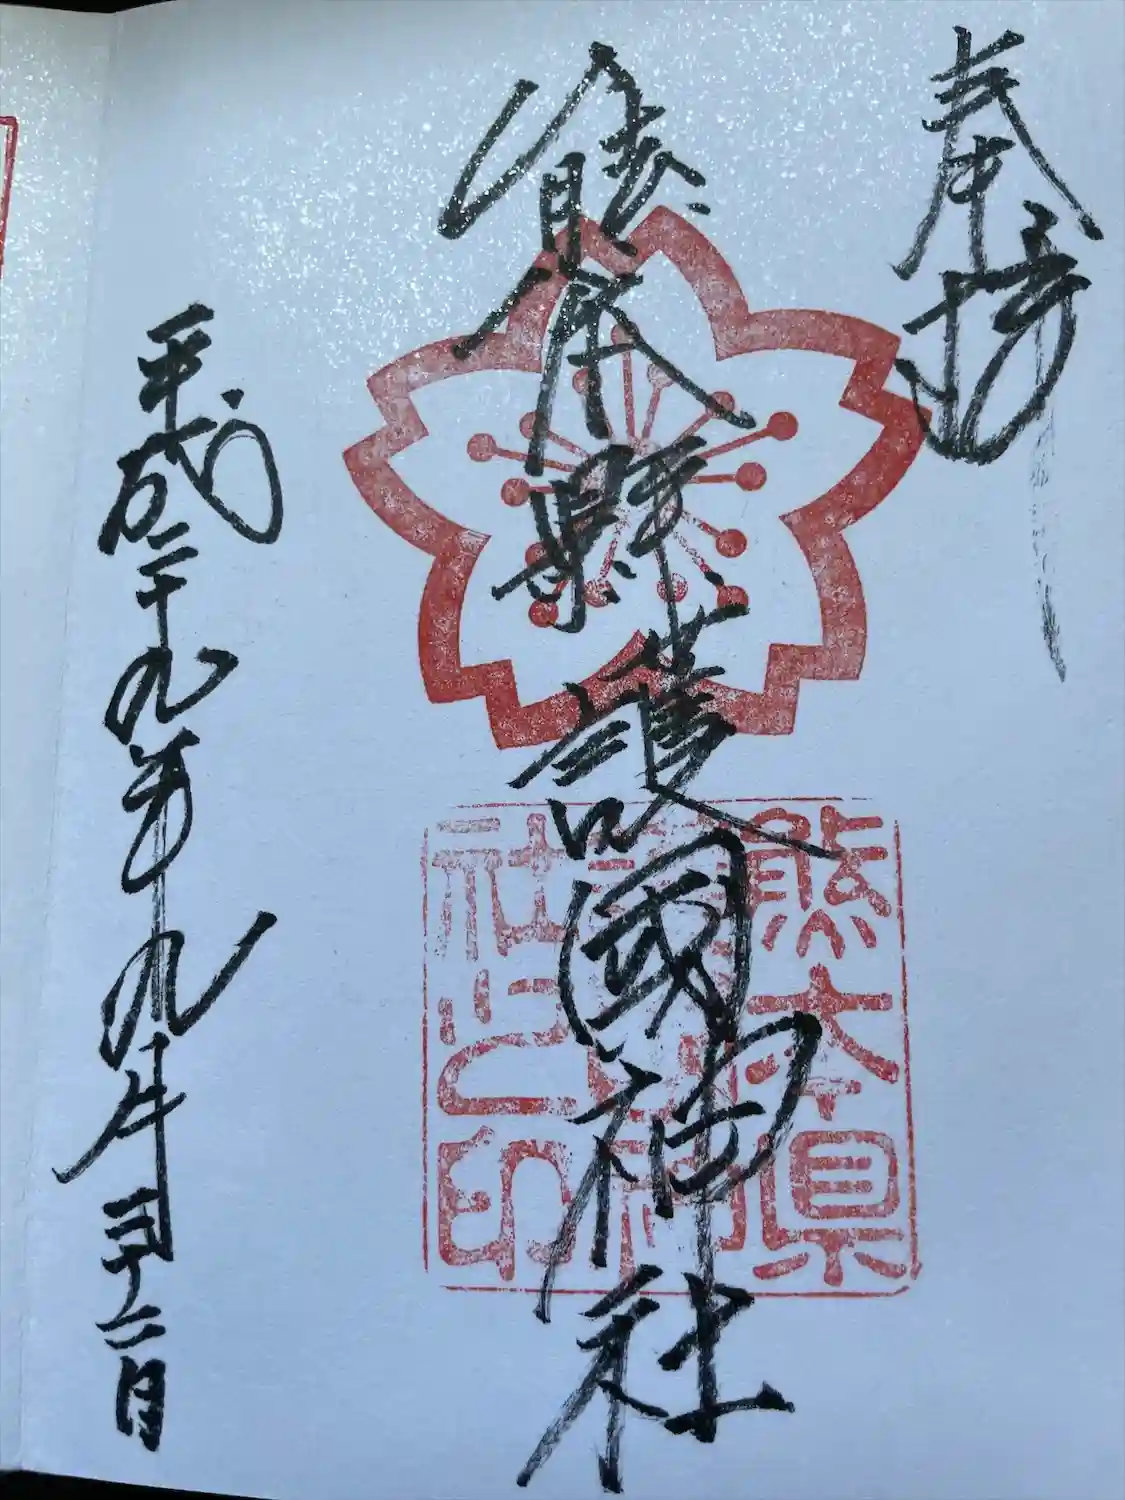 奉拝
熊本縣護國神社
熊本県
護國神
社之印
平成二十九年九月二十二日